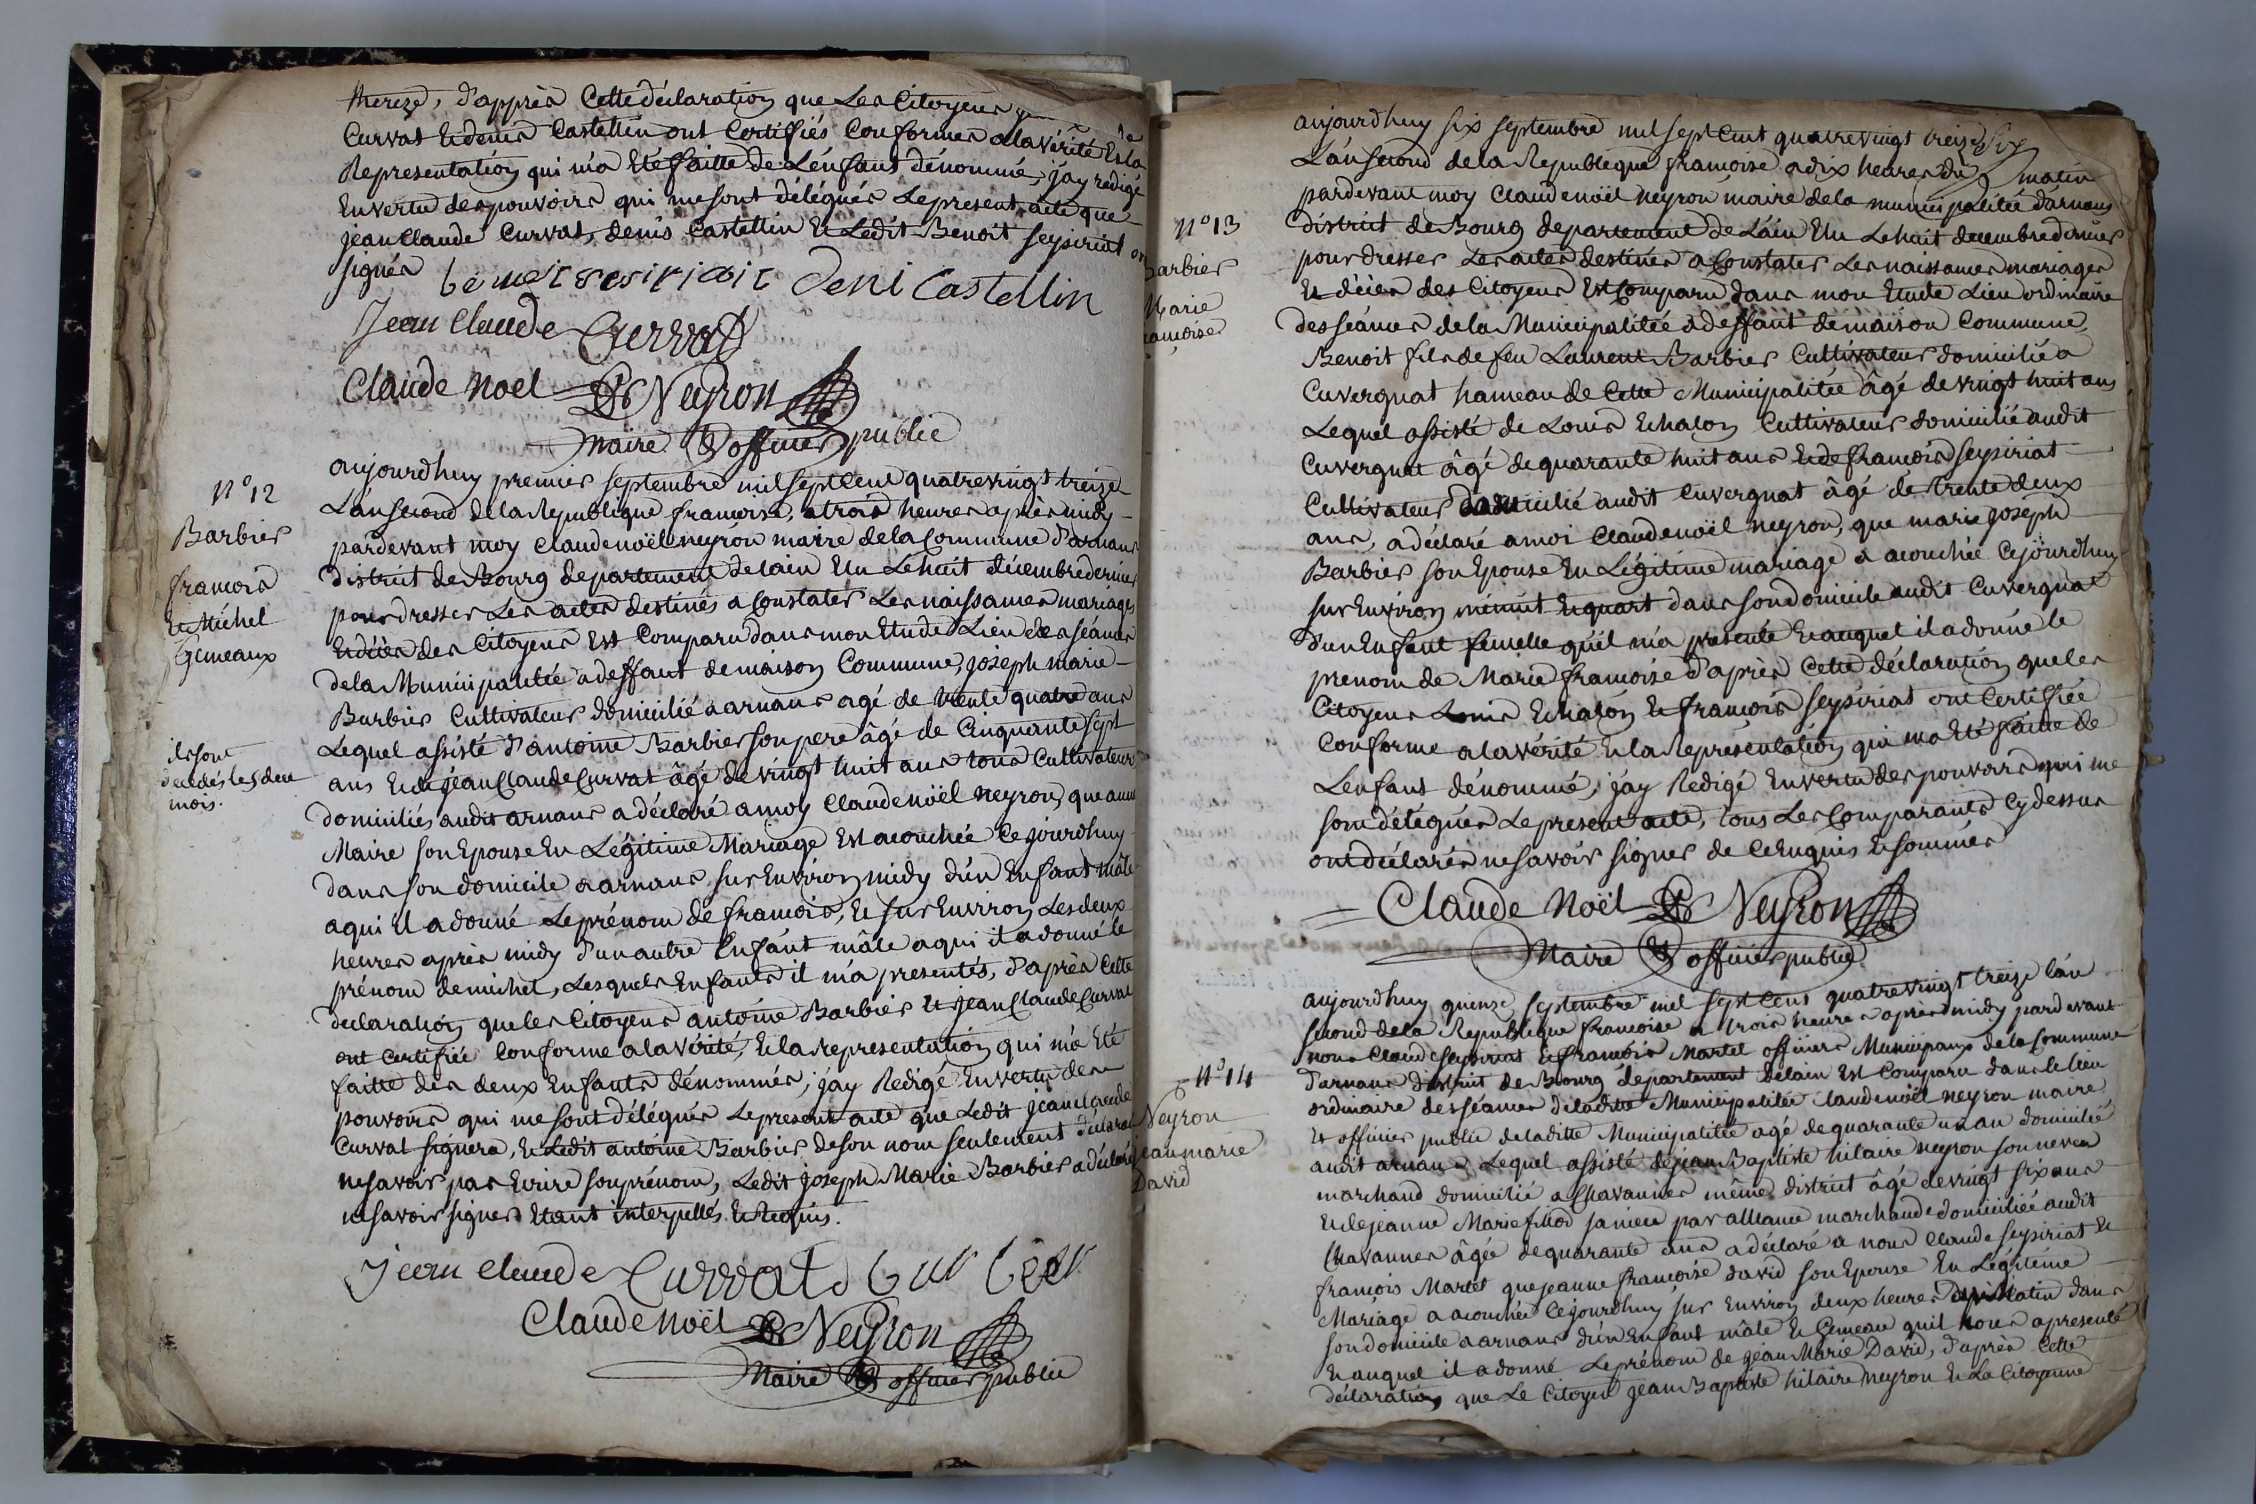 thereze, d'apprèr Cette déclaration que Les Citoyens
Curvat Et denis Castellin ont Certiffiés Conformes a la vérité Et la
Representation qui m'a Eté faitte de L'énfant dénommé, j'ay redigé
En vertu des pouvoirs qui me sont délégués Le present acte que
jean Claude Curvat, denis Castellin Et Ledit Benoit seyssiriat on
signés
deni Castellin
Jean Claude Curvat
Claude Noel Neyron
Maire Et officier public
N° 12
Barbier
francois
Et Michel
Gemeaux
ils sont
décédés les deu
mois.
aujourdhuy premier septembre mil sept Cent quatrevingt treize
L'an second de la Republique francoise, a trois heures après midy
pardevant moy Claude noël neyron maire de la Commune d'arnans
district de Bourg departement de lain Elu Le huit décembre dernier
pour dresser Les actes destinés a Constater Les naissances mariages
Et décès des Citoyens Est Comparu dans mon Etude Lieu des séances
de la Municipalitée a deffaut de maison Commune, joseph marie
Barbier Cultivateur domicilié a arnans agé de trente quatre ans
Lequel assisté d'antoine Barbier son pere âgé de Cinquante sept
ans Et de jean Claude Curvat âgé de vingt huit ans tous Cultivateurs
domiciliés audit arnans a déclaré a moy Claude noël neyron, que anne
Maire son Epouse En Légitime Mariage Est acouchée Cejourdhuy
dans son domicile a arnans sur Environ midy d'un Enfant mâle
a qui il a donné Le prénom de francois, Et sur Environ Les deux
heures après midy d'un autre Enfant mâle a qui il a donné le
prénom de michel, Lesquels Enfants il m'a presentés, d'après Cette
declaration que les Citoyens antoine Barbier Et jean Claude Curvat
ont Certifiée Conforme a la vérité, Et la representation qui m'a Eté
faitte des deux Enfants dénommés, j'ay Redigé En vertu des
pouvoirs qui me sont délégués Le present acte que Ledit jean claude
Curvat signera, Et Ledit antoine Barbier de son nom seulement déclarant
ne savoir pas Ecrire son prénom, Ledit joseph Marie Barbier a déclaré
ne savoir signer Etant interpellés Et Requis.
Jean Claude Curvat barbier
Claude Noël Neyron
Maire Et officier public
N° 13
Barbier
Marie
ancoise
aujourdhuy six septembre mil sept Cent quatrevingt treize
L'an second de la Republique francoise a dix heures du matin
pardevant moy Claude noël neyron maire de la municipalitée d'arnans
district de Bourg departement de L'ain Elu Le huit decembre dernier
pour dresser Les actes destinés a Constater Les naissances mariages
Et décès des Citoyens Est Comparu dans mon Etude Lieu ordinaire
des séances de la Municipalitée a deffaut de maison Commune,
Benoit fils de feu Laurent Barbier Cultivateur domicilié a
Cuvergnat hameau de Cette Municipalitée âgé de vingt huit ans
Lequel assisté de Louis Echalon Cultivateur domicilié audit
Cuvergnat âgé de quarante huit ans Et de francois seyssiriat
Cultivateur domicilié audit Cuvergnat âgé de trente deux
ans, a déclaré a moi Claude noël neyron, que marie joseph
Barbier son Epouse En Légitime mariage a acouchée Cejourdhuy
sur Environ minuit Et quart dans son domicile audit Cuvergnat
d'un Enfant femelle qu'il m'a presenté Et auquel il a donné le
prenom de Marie francoise d'après Cette déclaration que les
Citoyens Louis Echalon Et francois seyssiriat ont Certifiée
Conforme a la vérité Et la Representation qui m'a Eté faitte de
L'enfant dénommé, j'ay Redigé En vertu des pouvoirs qui me
sont délégués Le present acte, tous Les Comparants Cy dessus
ont déclarés ne savoir signer de Ce Enquis Et sommés
Claude Noël Neyron
Maire Et officier public
N° 14
Neyron
jean marie
David
aujourdhuy quinze septembre mil sept Cent quatrevingt treize l'an
second de la Republique francoise a trois heures après midy pardevant
nous Claude seyssiriat Et francois Martel officiers Municipaux de la Commune
d'arnans district de Bourg departement de lain Est Comparu dans le lieu
ordinaire des séances de ladite Municipalitée Claude noël neyron maire
Et officier public de laditte Municipalitée agé de quarante un an domicilié
audit arnans Lequel assisté de jean Baptiste hilaire neyron son neveu
marchand domicilié a Chavannes même district âgé de vingt six ans
Et de jeanne Marie fillod sa niece par alliance marchande domiciliée audit
Chavannes âgée de quarante ans a déclaré a nous Claude seyssiriat Et
francois Martel que jeanne francoise david son Epouse En Légitime
Mariage a acouchée Cejourdhuy sur Environ deux heures du Matin dans
son domicile a arnans d'un Enfant mâle Et Gemeau qu'il nous a presenté
Et auquel il a donné Le prénom de jean Marie David, d'après Cette
déclaration, que Le Citoyen jean Baptiste hilaire neyron Et La Citoyenne